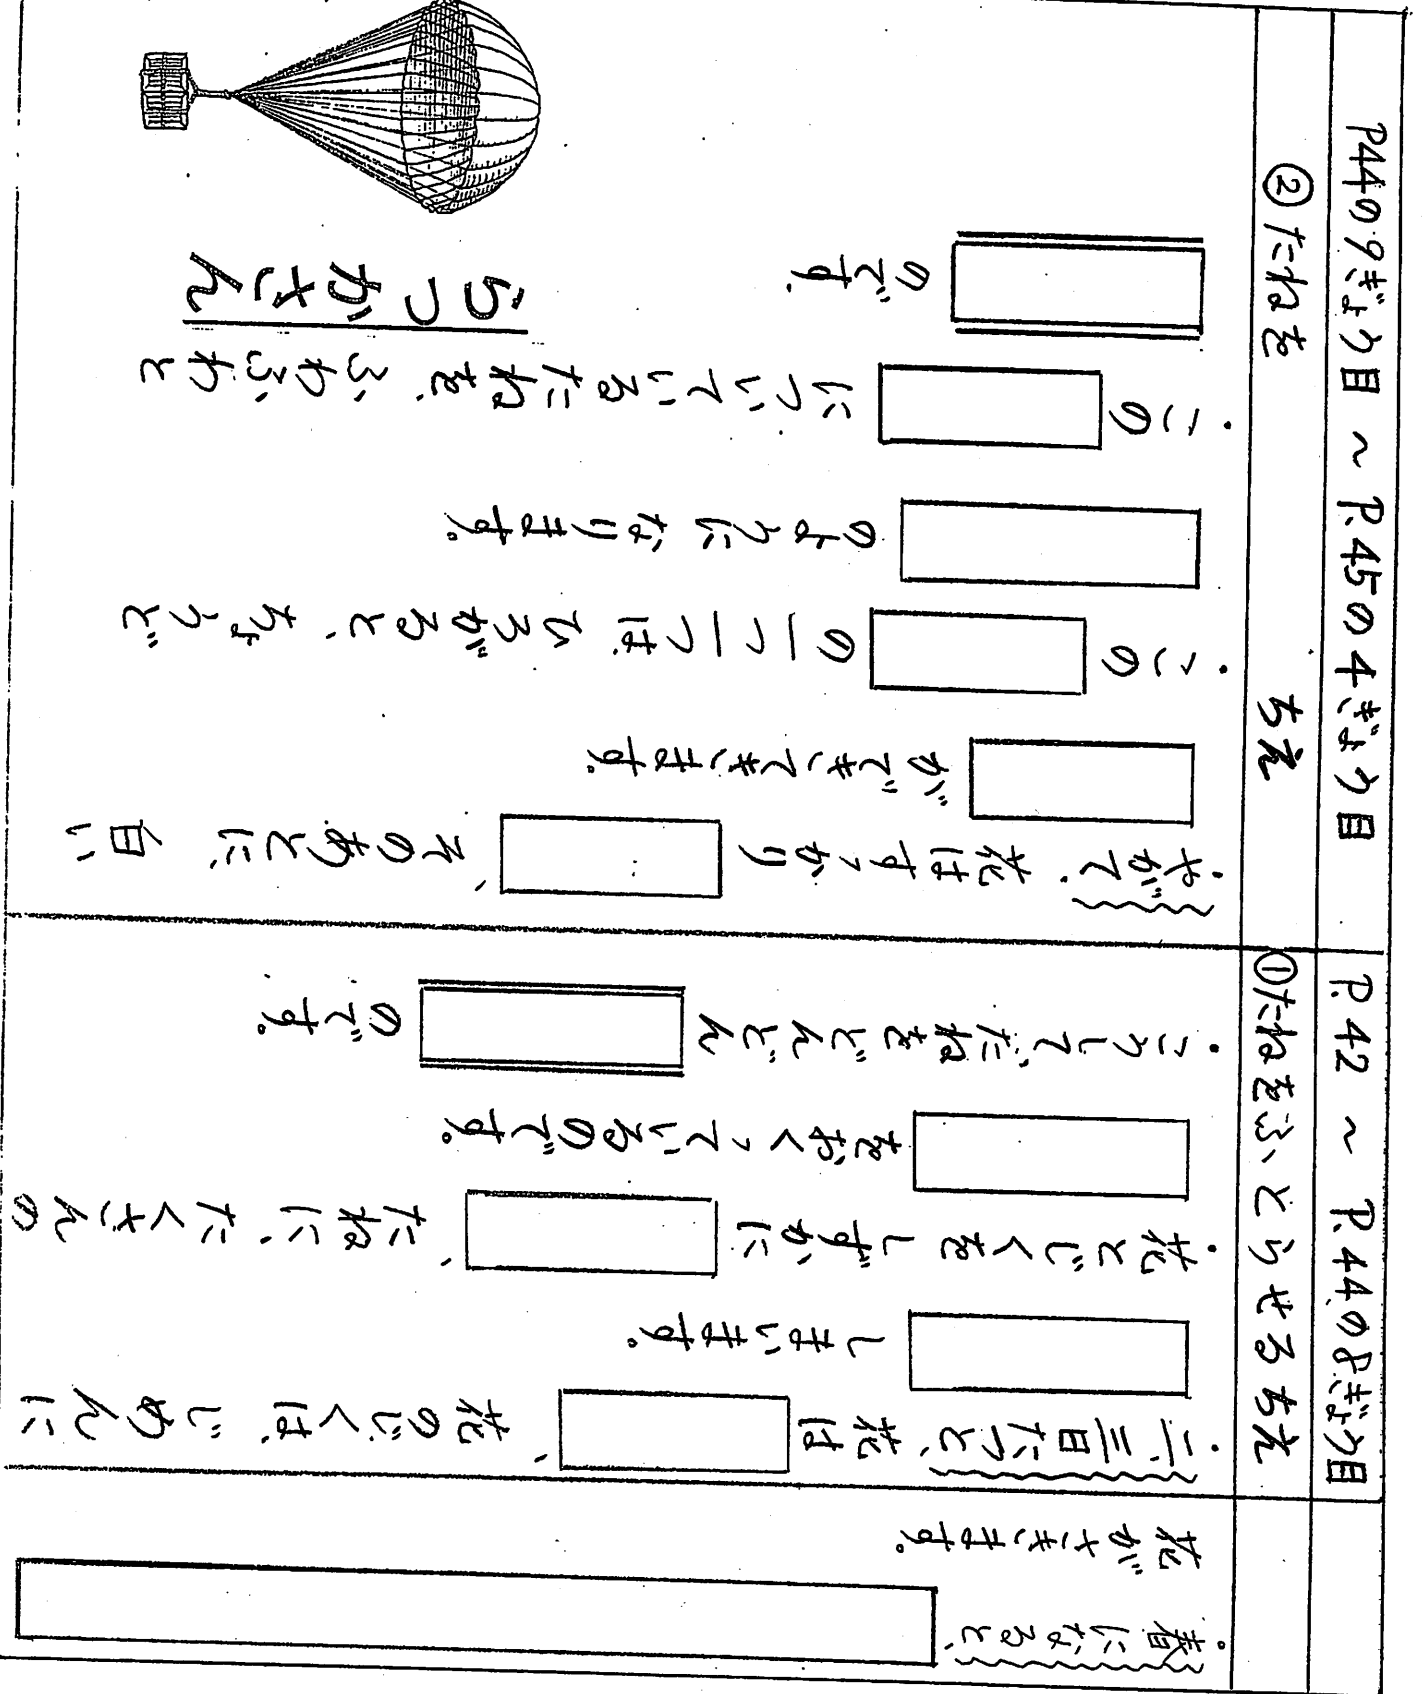 ・春になると、
花がさきます。
P.42 ～ P.44の8ぎょう目
①たねをふとらせるちえ
・二、三日たつと、花は 、花のじくは、じめんに
しまいます。
・花とじくをしずかに 、たねに、たくさんの
をおくっているのです。
・こうして、たねをどんどん のです。
P44の9ぎょう目 ～ P.45の4ぎょう目
②たねを ちえ
・やがて、花はすっかり 、そのあとに、白い
ができてきます。
・この の一つ一つは、ひろがると、ちょうど
のようになります。
・この についているたねを、ふわふわと
のです。
らっかさん